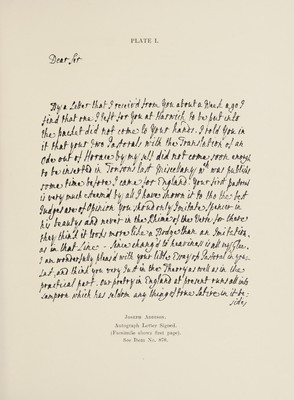 PLATE I.
Dear Sir
By a Letter that I receiv'd from You about a Week ago I
find that one I left for You at Harwich to be put into
the packet did not come to Your hands. I told You in
it that your Two Pastorals with the Translation of an
Ode out of Horace by my self did not come soon enough
to be inserted in Tonsons last Miscellany wch was publisht
some time before I came for England. Your first pastoral
is very much esteem'd by all I have shown it to tho the best
Judges are of Opinion You should only Imitate Spencer in
his beautys and never in the Rhime of the Verse for there
they think it looks more like a Bodge than an Imitation,
as in that Line - Since chang'd to heaviness is all my Glee.
I am wonderfully pleas'd with your little Essay of Pastoral in your
last, and think you very Just in the Theory as well as in the
practical part. Our poetry in England at present runs all into
Lampoon which has seldom any thing of true Satire in it be-
sides
JOSEPH ADDISON.
Autograph Letter Signed.
(Facsimile shows first page).
See Item No. 878.